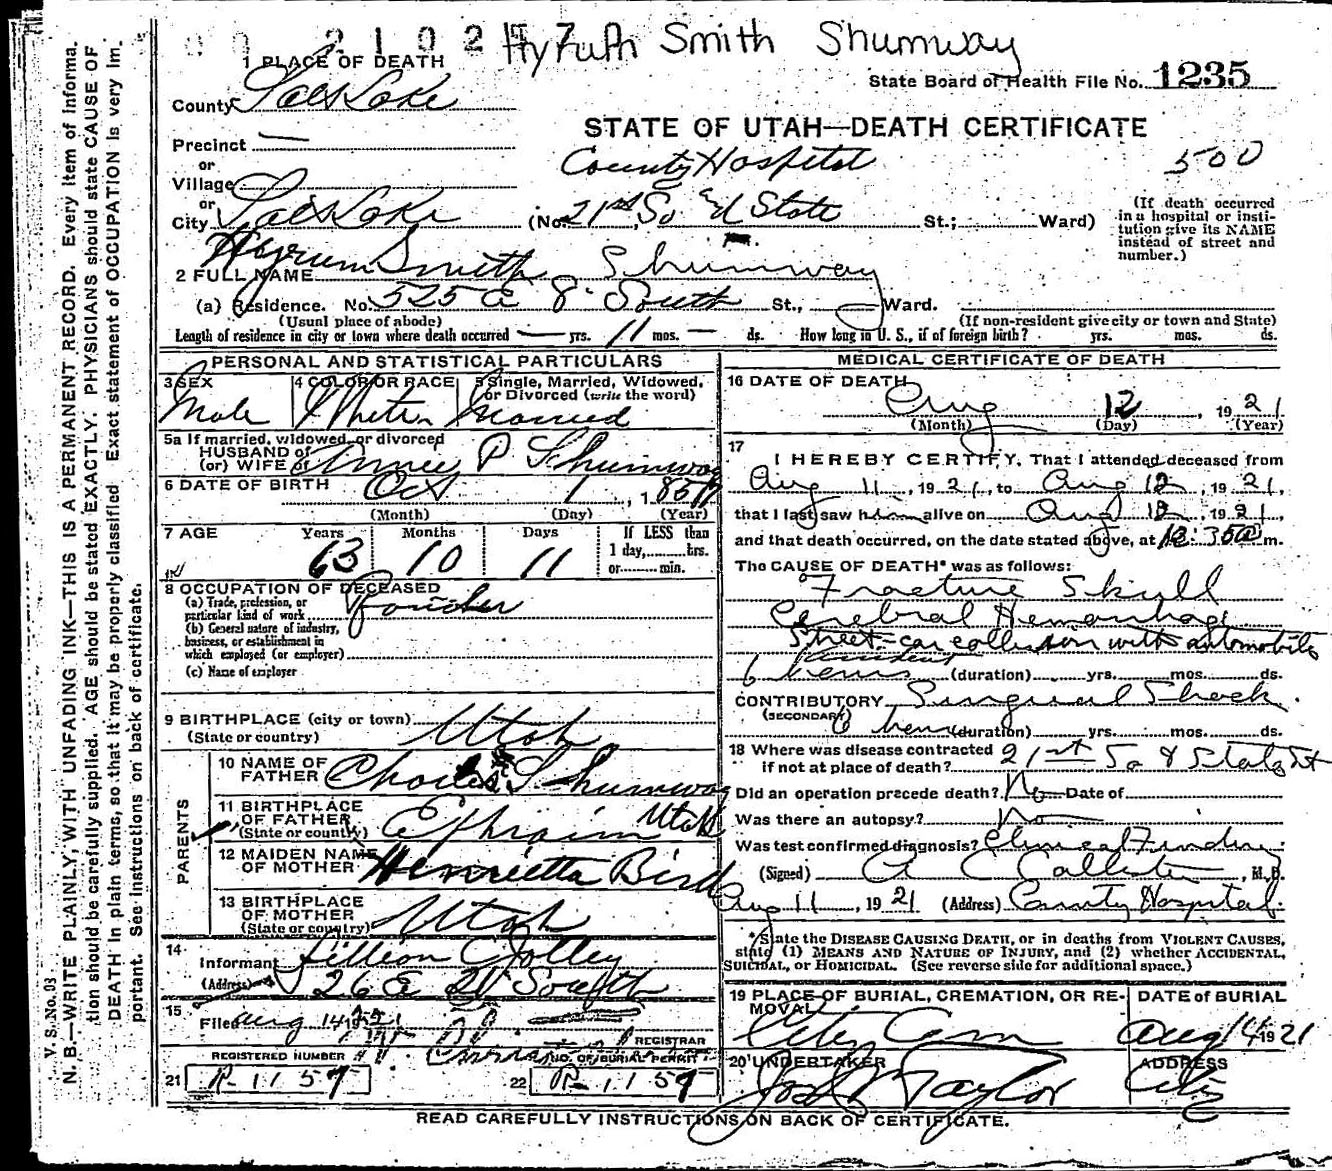 21025 7 Hyrum Smith Shumway
1 PLACE OF DEATH
State Board of Health File No. 1235
County Salt Lake
STATE OF UTAH—DEATH CERTIFICATE
Precinct —
County Hospital
500
or
Village
or
City Salt Lake (No. 21st So & State St.; Ward)
(If death occurred in a hospital or insti-
tution give its NAME
instead of street and
number.)
2 FULL NAME Hyrum Smith Shumway
(a) Residence. No. 525 E 8 South St., Ward.
(Usual place of abode) (If non-resident give city or town and State)
Length of residence in city or town where death occurred — yrs. 11 mos. — ds. How long in U. S., if of foreign birth? yrs. mos. ds.
PERSONAL AND STATISTICAL PARTICULARS
3 SEX Male
4 COLOR OR RACE White
5 Single, Married, Widowed,
or Divorced (write the word)
Married
5a If married, widowed, or divorced
HUSBAND of
(or) WIFE of Annie P Shumway
6 DATE OF BIRTH Oct 1, 1857
(Month) (Day) (Year)
7 AGE Years 63 Months 10 Days 11
If LESS than
1 day, hrs.
or min.
8 OCCUPATION OF DECEASED
(a) Trade, profession, or
particular kind of work
(b) General nature of industry,
business, or establishment in
which employed (or employer)
(c) Name of employer
9 BIRTHPLACE (city or town)
(State or country) Utah
PARENTS
10 NAME OF
FATHER Charles Shumway
11 BIRTHPLACE
OF FATHER
(State or country) Ephraim Utah
12 MAIDEN NAME
OF MOTHER Henrietta Bird
13 BIRTHPLACE
OF MOTHER
(State or country) Utah
14
Informant Lillian Jolley
(Address) 26 E 21 South
15
Filed Aug 14 1921
REGISTRAR
REGISTERED NUMBER
NO. OF BURIAL PERMIT
21 R-1157
22 P-1157
MEDICAL CERTIFICATE OF DEATH
16 DATE OF DEATH
Aug 12, 1921
(Month) (Day) (Year)
17
I HEREBY CERTIFY, That I attended deceased from
Aug 11, 1921, to Aug 12, 1921,
that I last saw him alive on Aug 12, 1921
and that death occurred, on the date stated above, at 12:35 a m.
The CAUSE OF DEATH* was as follows:
Fracture Skull
Cerebral Hemorrhage
Street-car collision with automobile
accident
6 hours (duration) yrs. mos. ds.
CONTRIBUTORY Surgical Shock.
(SECONDARY)
6 hours (duration) yrs. mos. ds.
18 Where was disease contracted
if not at place of death? 21st So & State St
Did an operation precede death? No Date of
Was there an autopsy? No
Was test confirmed diagnosis? Clinical Finding
(Signed) A C Callister, M.D.
Aug 11, 1921 (Address) County Hospital.
*State the DISEASE CAUSING DEATH, or in deaths from VIOLENT CAUSES,
state (1) MEANS AND NATURE OF INJURY, and (2) whether ACCIDENTAL,
SUICIDAL, or HOMICIDAL. (See reverse side for additional space.)
19 PLACE OF BURIAL, CREMATION, OR RE-
MOVAL
City Cem
DATE of BURIAL
Aug 14 1921
20 UNDERTAKER
Jos Taylor
ADDRESS
City
READ CAREFULLY INSTRUCTIONS ON BACK OF CERTIFICATE.
V. S. No. 03
N. B.—WRITE PLAINLY, WITH UNFADING INK—THIS IS A PERMANENT RECORD. Every item of informa-
tion should be carefully supplied. AGE should be stated EXACTLY. PHYSICIANS should state CAUSE OF
DEATH in plain terms, so that it may be properly classified. Exact statement of OCCUPATION is very im-
portant. See instructions on back of certificate.